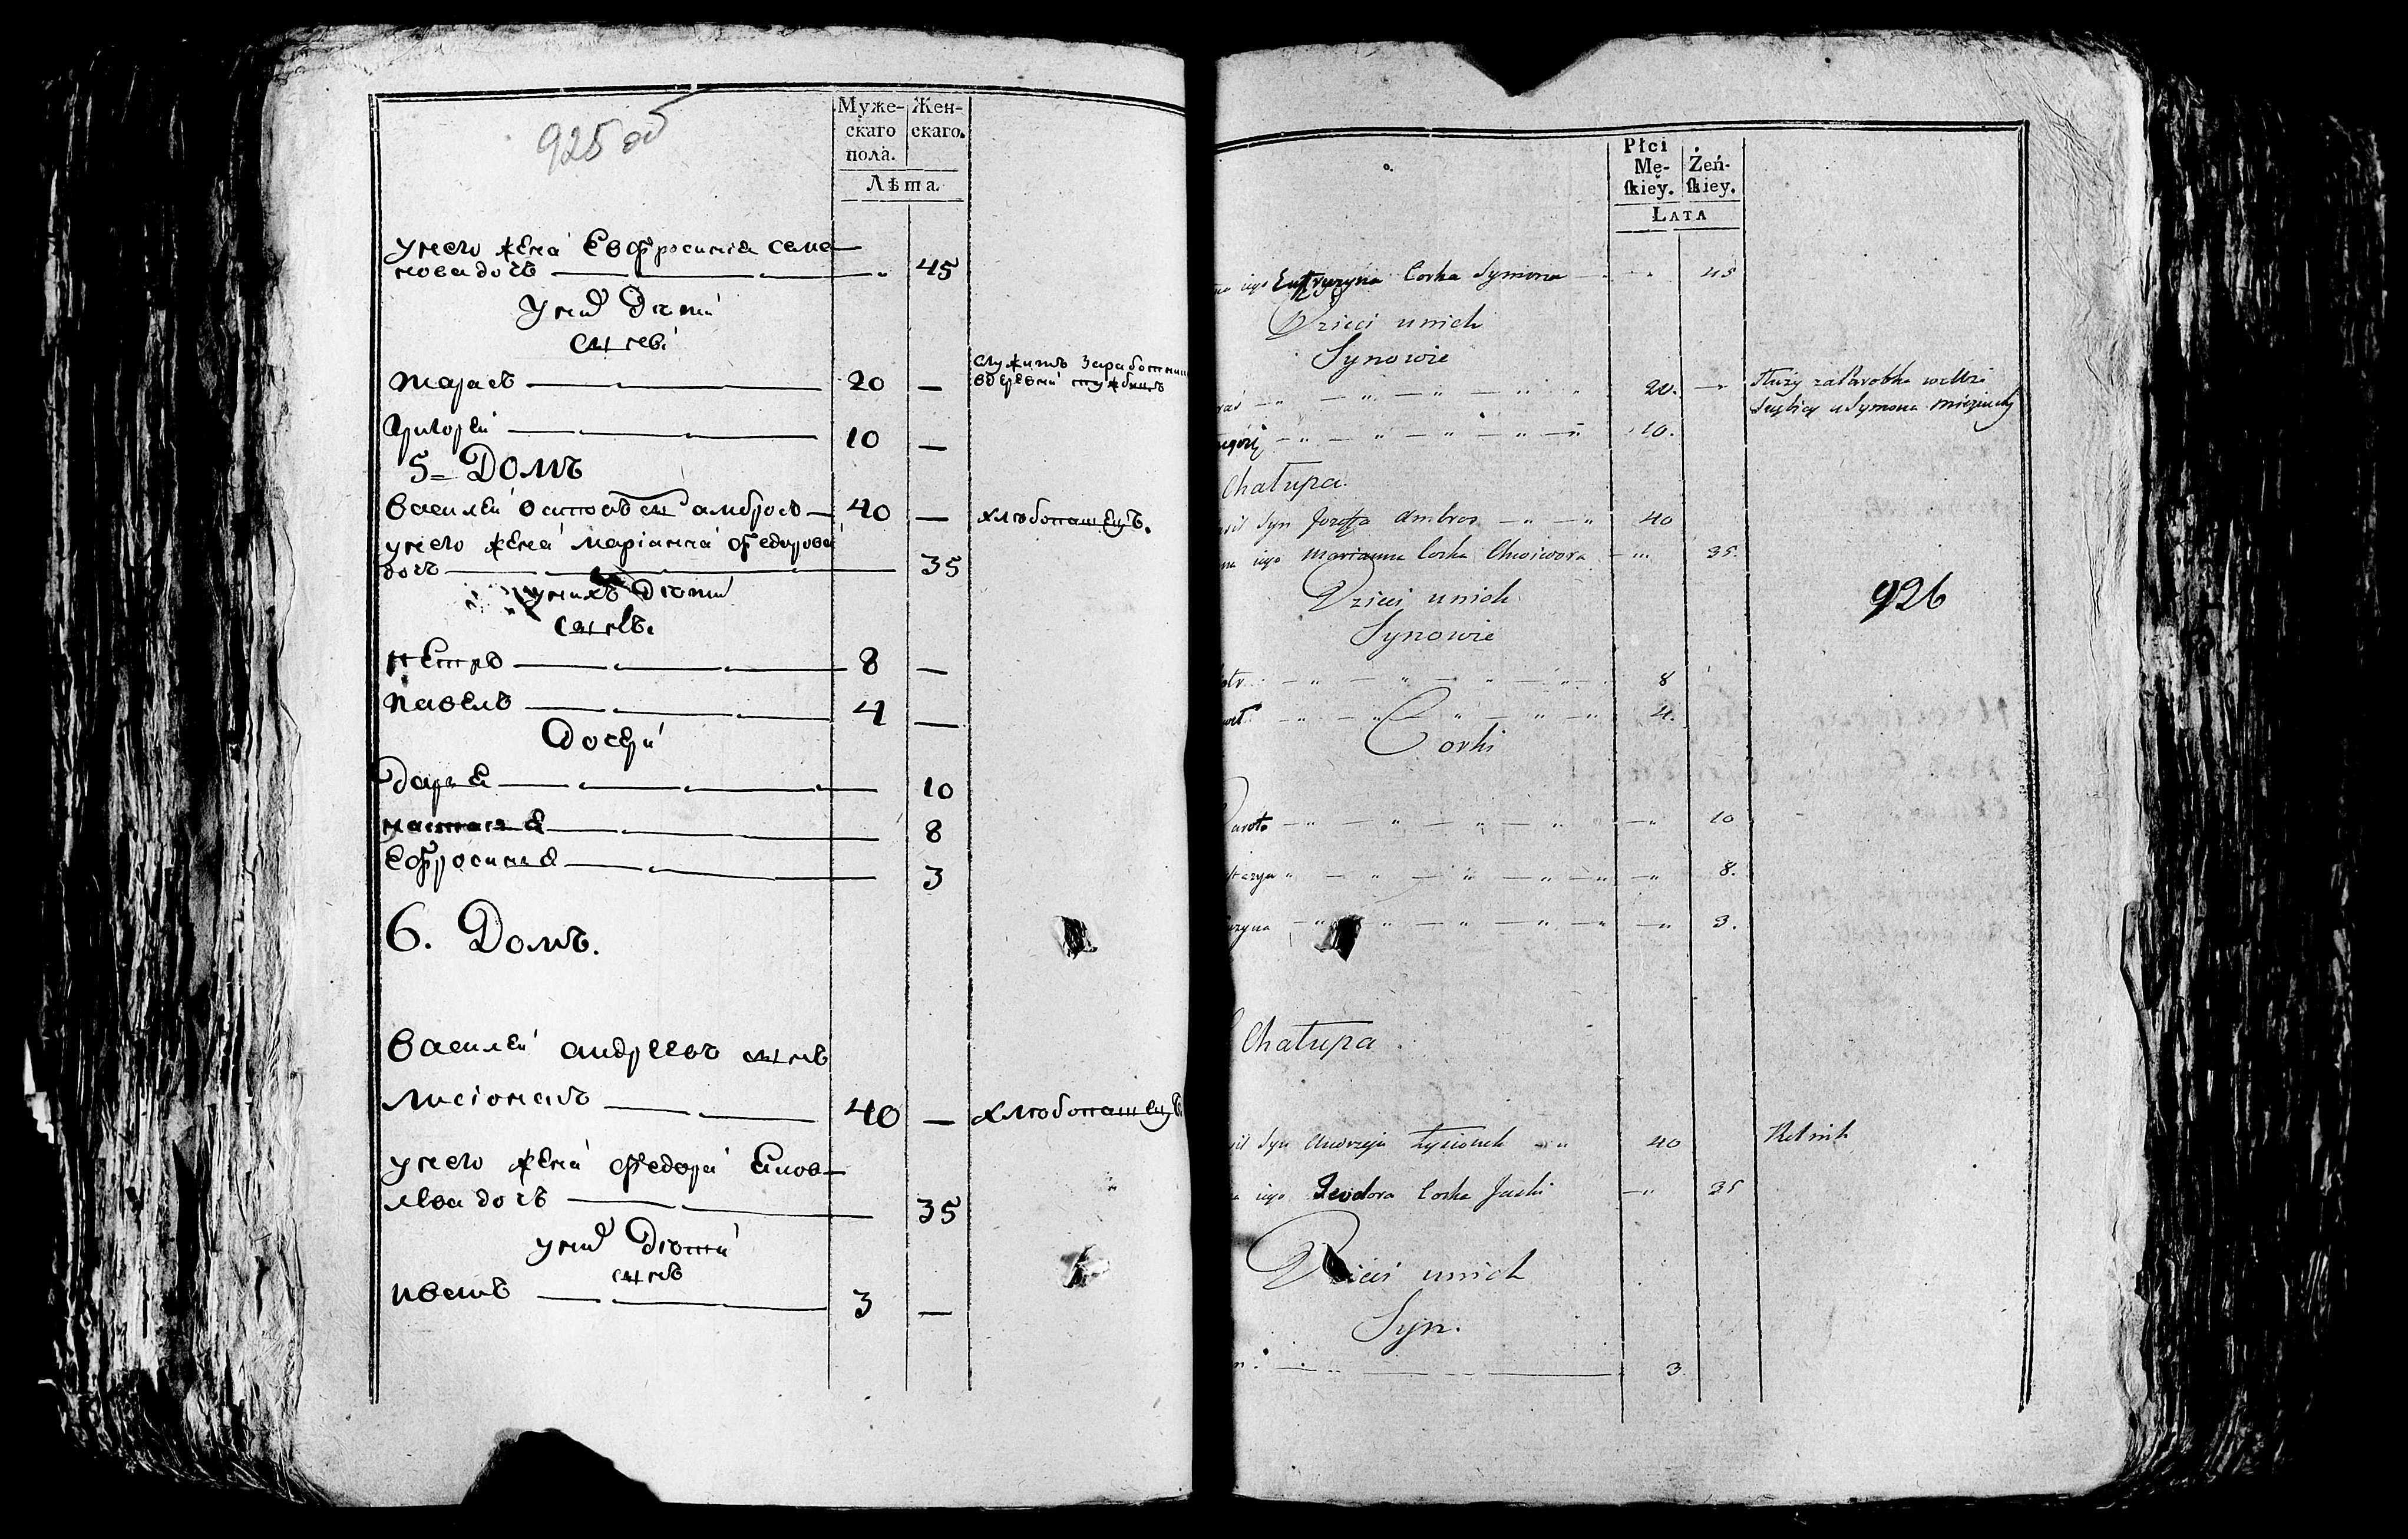 925 об
Муже-
скаго
пола.
Жен-
скаго.
Лѣта
у него жена Евфросиніа Семе-
нова дочь 45
У нихъ Дѣти
Сыновѣ
Тарасъ 20 —
Служитъ за работника
в деревни
Григорѣй 10 —
5= Домъ
Василей Осиповъ сынъ Амбросъ 40 — хлѣбопашецъ.
у него жена Маріанна Федорова
дочь 35
у нихъ Дѣти
Сыновѣ.
Петръ 8 —
Павелъ 4 —
Дочери
Дарья 10
Настасья 8
Ефросинья 3
6. Домъ.
Василей Андреевъ сынъ
Лисіонакъ 40 — хлѣбопашецъ.
у него жена Федора Яков-
лева дочь 35
у нихъ Дѣти
сынъ
Иванъ 3 —
Płci
Mę-
skiey.
Żeń-
skiey.
Lata
iego Eufrozyna Corka Symona 45
Dzieci unich
Synowie
20. Służy za Parobka we Wsi
u Symona
10.
Chałupa.
Syn Jozefa Ambros 40
iego Marianna Corka Chwiedora 35
Dzieci unich
Synowie
8
4.
Corki
10
8.
3.
926
Chałupa
Syn Andrzeja Łysionek 40 Rolnik
iego Teodora Corka Jacki 35
Dzieci unich
Syn.
3